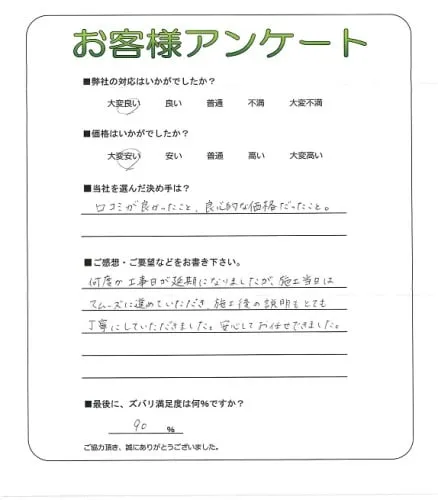 お客様アンケート
■弊社の対応はいかがでしたか？
大変良い 良い 普通 不満 大変不満
■価格はいかがでしたか？
大変安い 安い 普通 高い 大変高い
■当社を選んだ決め手は？
口コミが良かったこと、良心的な価格だったこと。
■ご感想・ご要望などをお書き下さい。
何度か工事日が延期になりましたが、施工当日は
スムーズに進めていただき、施工後の説明もとても
丁寧にしていただきました。安心してお任せできました。
■最後に、ズバリ満足度は何％ですか？
90 ％
ご協力頂き、誠にありがとうございました。